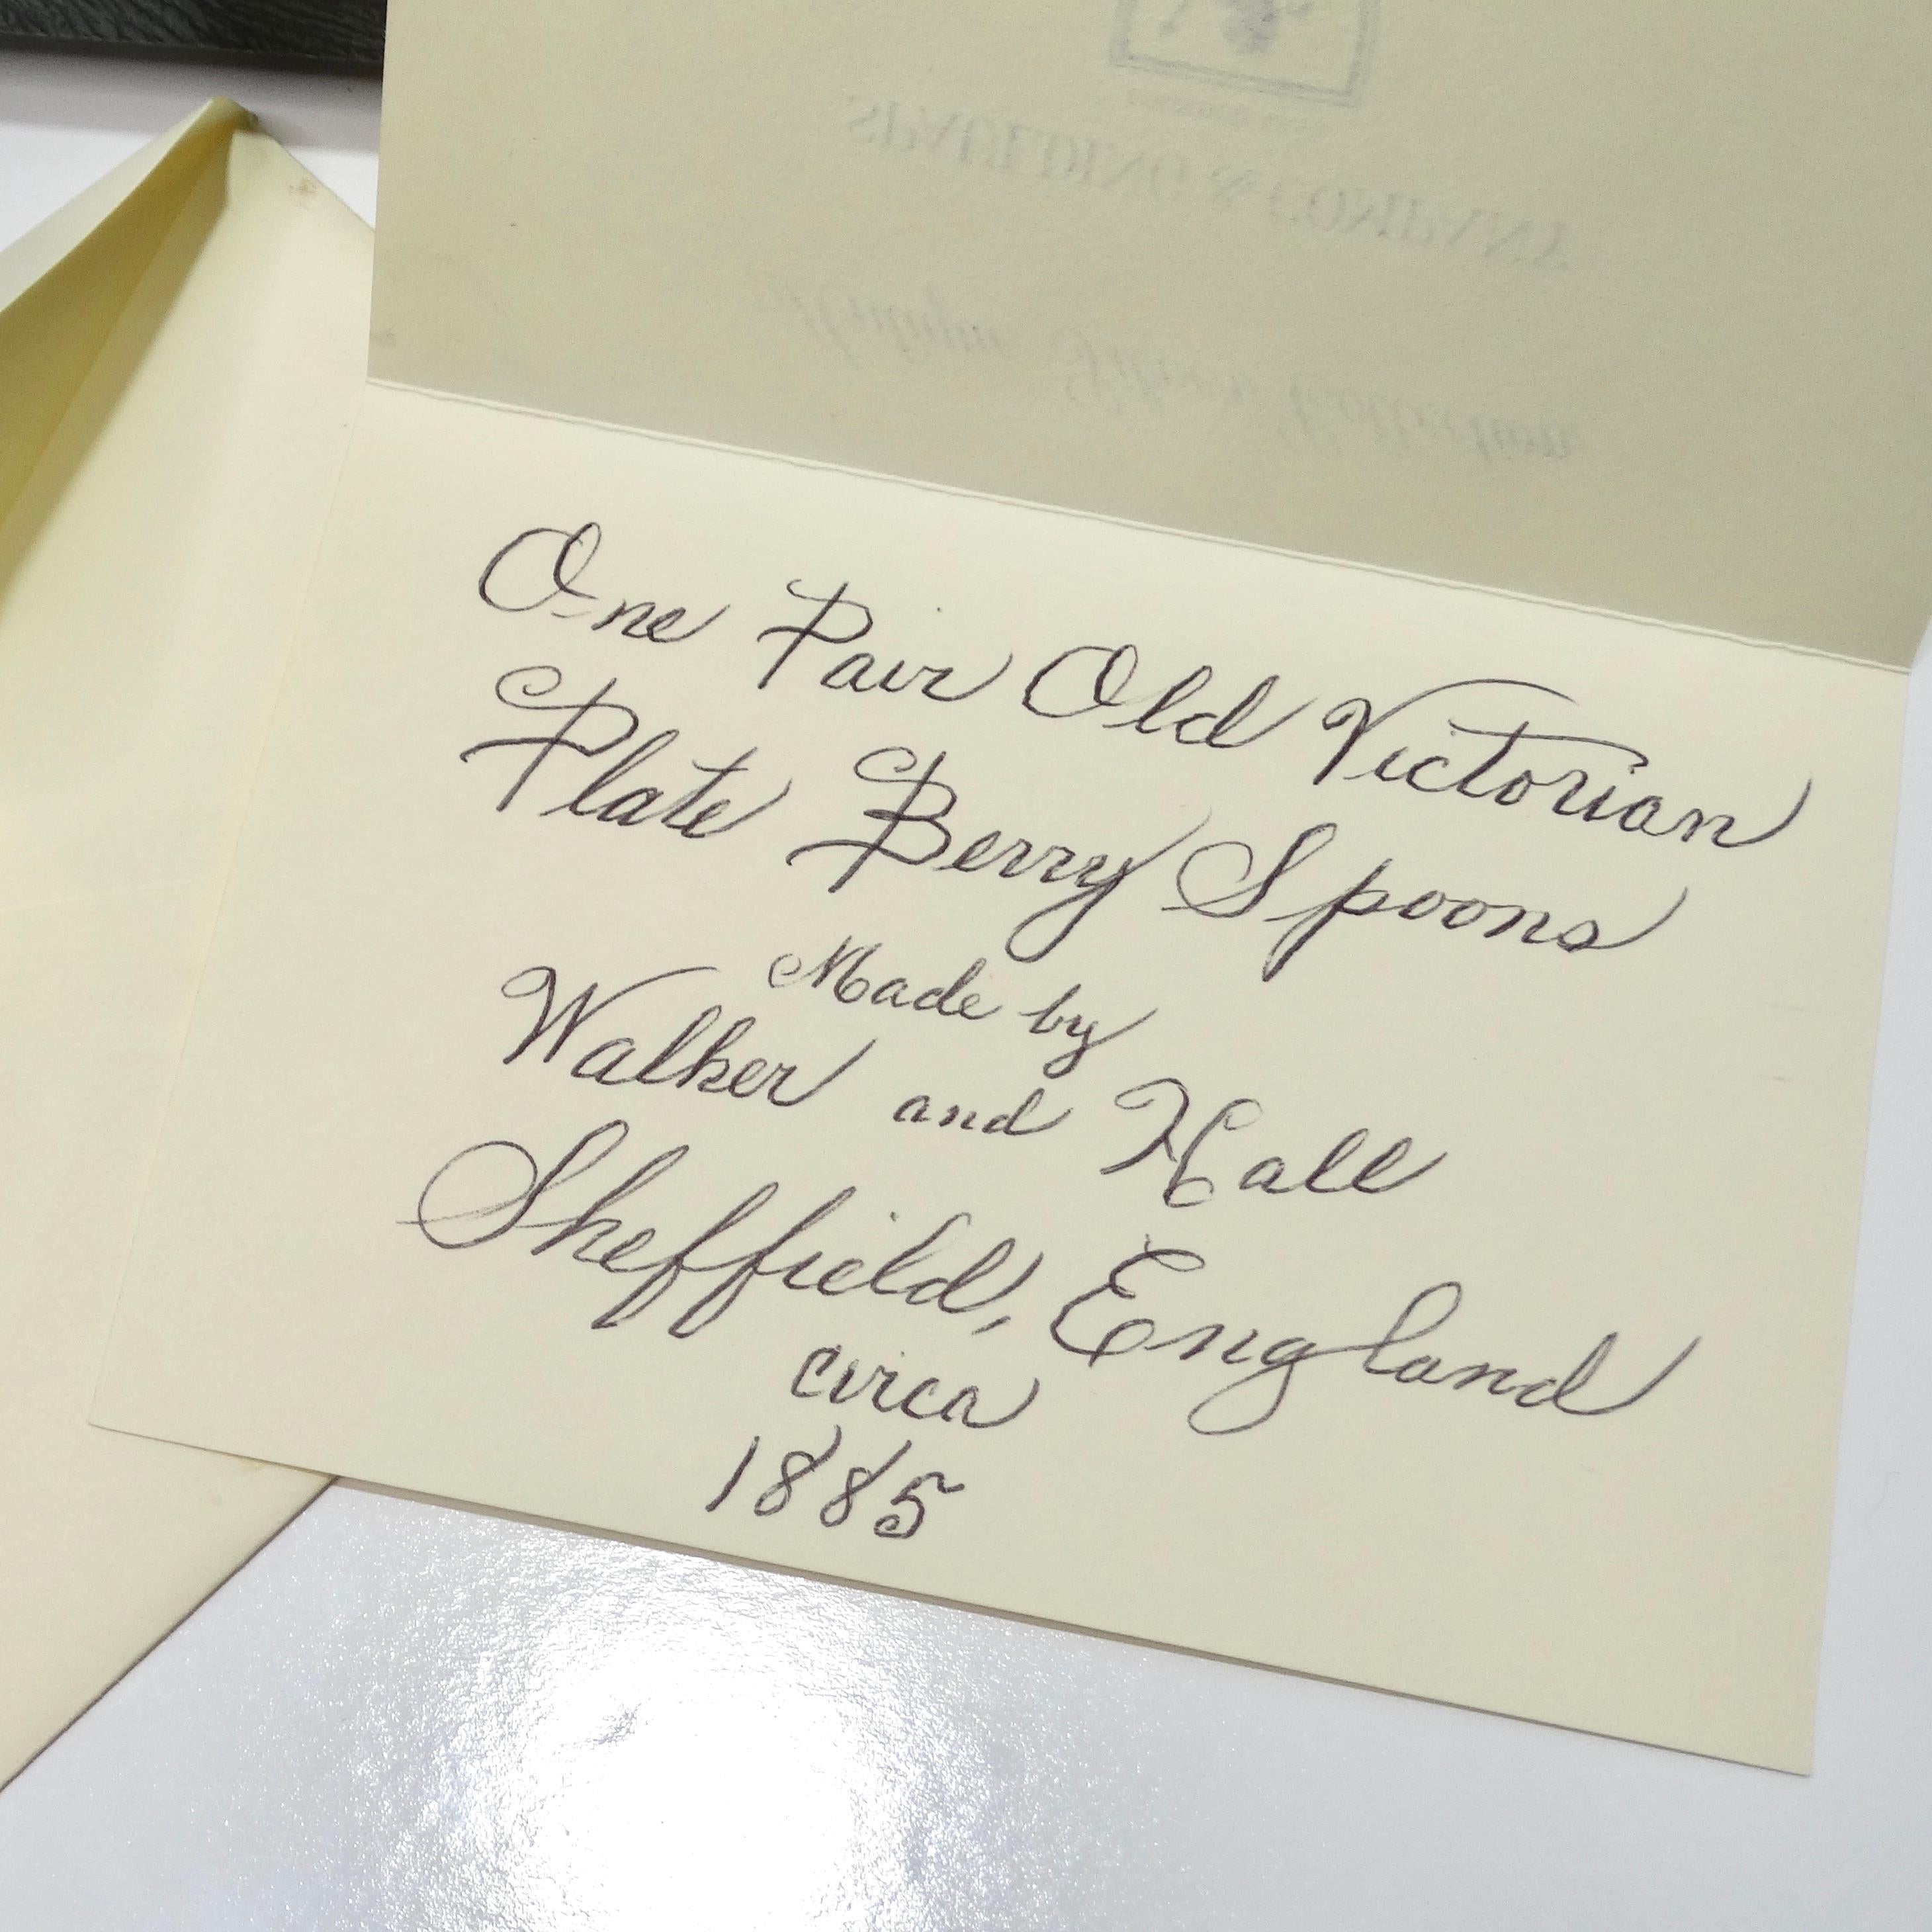 SPAULDING & COMPANY
One Pair Old Victorian
Plate Berry Spoons
Made by
Walker and Hall
Sheffield, England
circa
1885